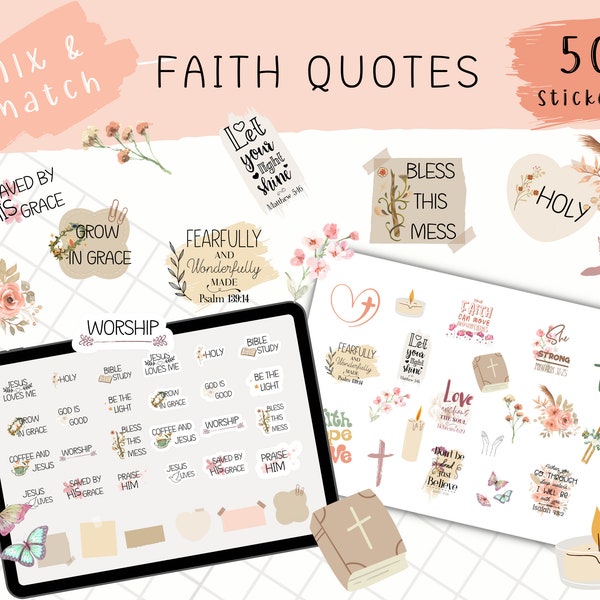 MIX &
match
FAITH QUOTES
50
Sticke
SAVED BY
HIS GRACE
GROW
IN GRACE
Let
your
light
shine
Matthew 5:16
FEARFULLY
AND
Wonderfully
MADE
Psalm 139:14
BLESS
THIS
MESS
HOLY
WORSHIP
JESUS
LOVES ME
HOLY
BIBLE
STUDY
JESUS
LOVES ME
HOLY
BIBLE
STUDY
GROW
IN GRACE
GOD IS
GOOD
BE THE
LIGHT
GROW
IN GRACE
GOD IS
GOOD
BE THE
LIGHT
COFFEE AND
JESUS
WORSHIP
BLESS
THIS
MESS
COFFEE AND
JESUS
WORSHIP
BLESS
THIS
MESS
JESUS
LIVES
SAVED BY
HIS GRACE
PRAISE
HIM
JESUS
LIVES
SAVED BY
HIS GRACE
PRAISE
HIM
FAITH
CAN MOVE
She
STRONG
FEARFULLY
AND
Wonderfully
MADE
Psalm 139:14
Let
your
light
shine
Love
THE SOUL
faith
hope
love
Don't be
afraid
just
Believe
GO THROUGH
I WILL BE
with you
Isaiah 43:2